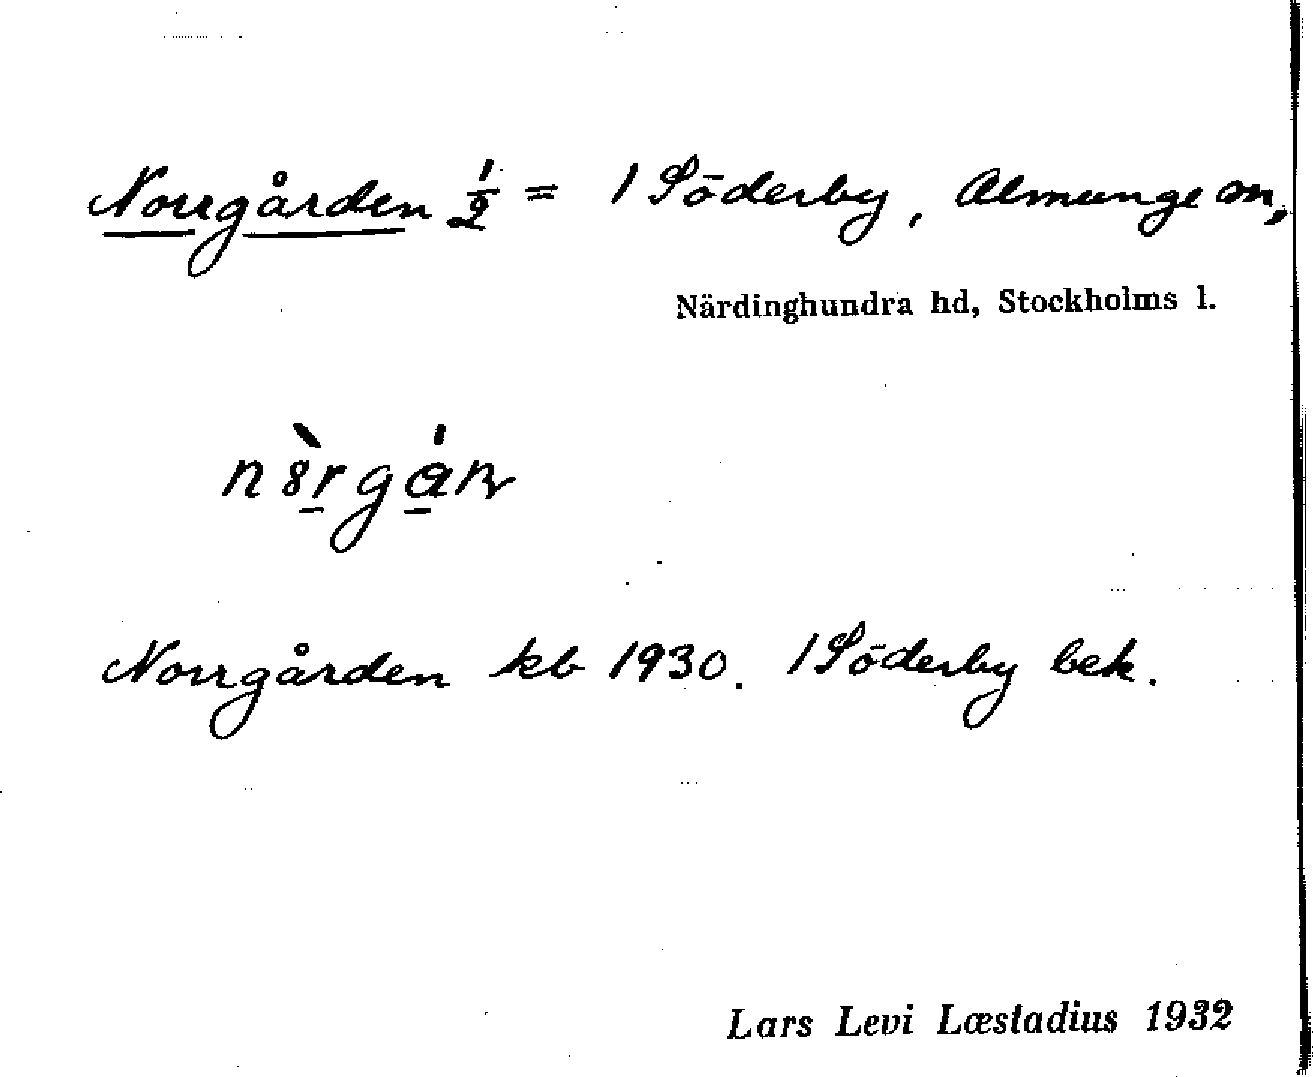 Norrgården ½ = 1 Söderby, Almunge sn,
Närdinghundra hd, Stockholms l.
Norrgården kb 1930. 1 Söderby bek.
Lars Levi Læstadius 1932